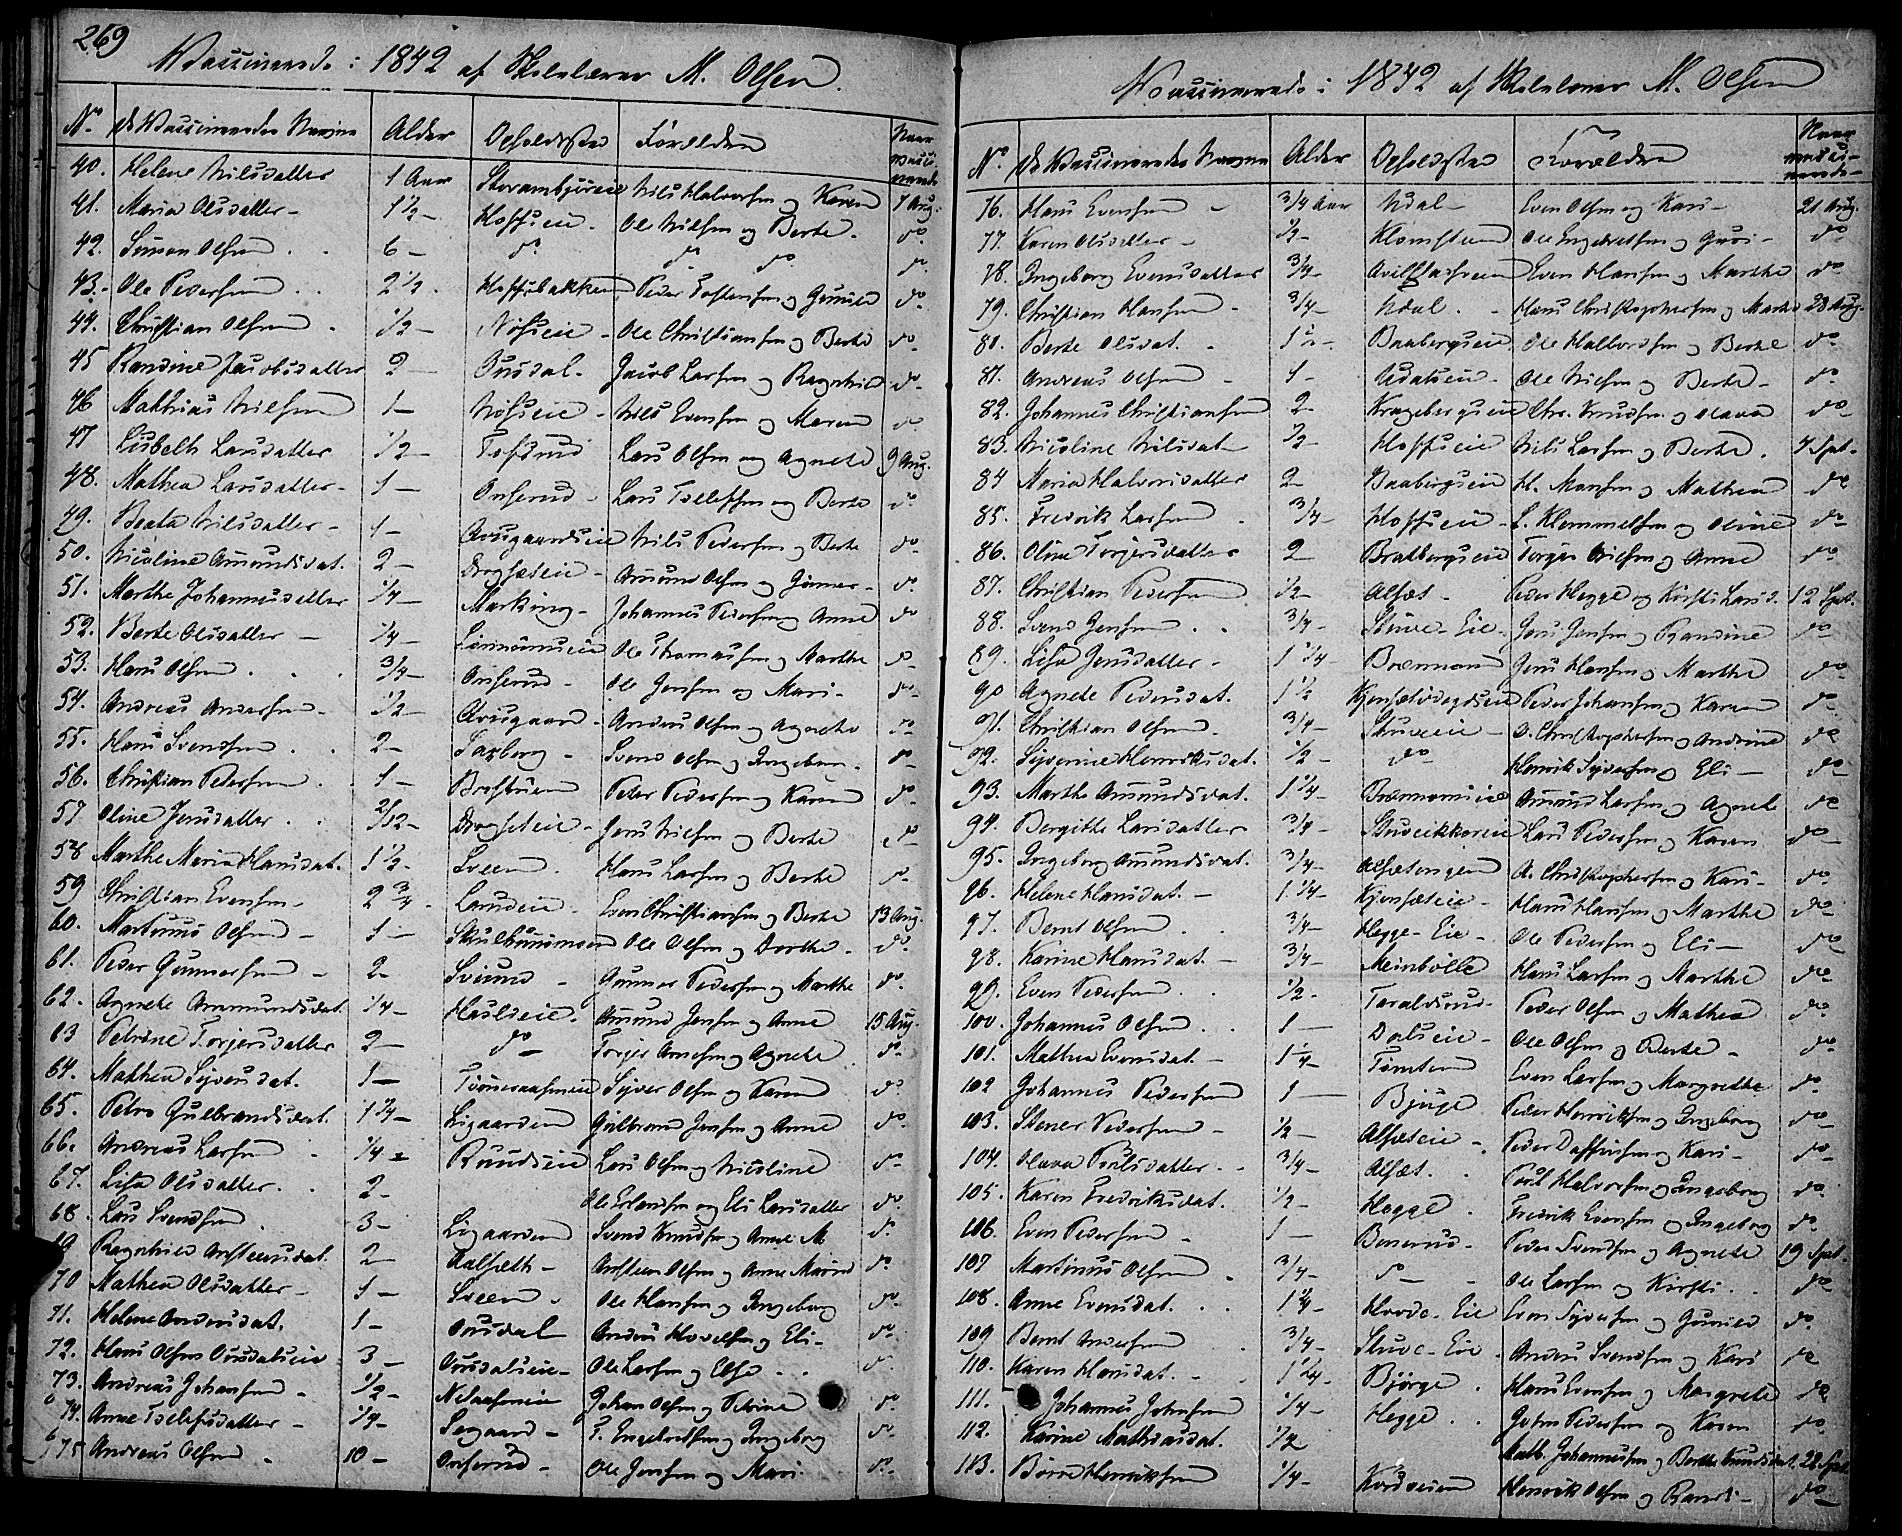 269
Vaccinerede i 1842 af Skolelærer M. Olsen.
No. de Vaccineredes Navne Alder Opholdssted Forældre Naar vaccinerede
40. Helene Nilsdatter 1 Aar Nils Halvorsen og Karen 7 Aug.
41. Maria Olsdatter - 1½ - Hoffseie - Ole Nilsen og Berte - do
42. Simen Olsen . . 6 - do do do do
43. Ole Pedersen . . 2½ - Hoffsbakken Peder Tostensen og Gunild do
44. Christian Olsen . ½ - Ole Christiansen og Berte do
45 Randine Jacobsdatter 2 - Ousdal - Jacob Larsen og Ragnhild do
46 Mathias Nilsen 1 - Nils Evensen og Maren do
47 Lisbeth Larsdatter ½ - Lars Olsen og Agnete 9 Aug.
48. Mathea Larsdatter - 1 - Onserud - Lars Tollefsen og Berte do
49. Beata Nilsdatter - 1 - Nils Pedersen og Berte do
50. Nicoline Amundsdat. 2 - Amund Olsen og Gunner - do
51. Marthe Johannesdatter ¼ - Marking - Johannes Pedersen og Anne do
52. Berte Olsdatter - ¼ - Ole Thomassen og Marthe do
53. Hans Olsen . . . ¾ - Onserud - Ole Jensen og Mari - do
54. Andreas Andersen - ½ - Anders Olsen og Agnete do
55. Hans Svendsen . . 2 - Saxberg - Svend Olsen og Ingeborg - do
56. Christian Pedersen . 1 - Peder Pedersen og Karen do
57 Oline Jensdatter . . 2/12 - Jens Nilsen og Berte do
58 Marthe Maria Hansdat. 1½ - Sveen . Hans Larsen og Berte do
59 Christian Evensen - 2¾ - Even Christiansen og Berte 13 Aug.
60. Martinus Olsen - 1 - Ole Olsen og Dorthe - do
61. Peder Gunnersen - 2 - Gunner Pedersen og Marthe do
62. Agnete Ammundsdat. ¼ - Amund Jensen og Anne 15 Aug.
63 Petrine Torgersdatter 2 - do Torger Arnesen og Agnete do
64. Mathea Syversdat. 1 - Syver Olsen og Karen do
65. Petra Gulbrandsdat. 1¼ - Ligaarden Gulbrand Jensen og Anne do
66. Andreas Larsen . ¼ - Rundseie Lars Olsen og Nicoline do
67. Lisa Olsdatter . . 2 - Ole Erlandsen og Eli Larsdatter do
68. Lars Svendsen . 3 - Ligaarden Svend Knudsen og Anne M do
69 Ragnhild Anstensdat. 2 - Aalseth - Ansteen Olsen og Anne Maria do
70 Mathea Olsdatter - 1 - Sveen - Ole Hansen og Ingeborg do
71. Helene Andersdat. 1 - Ousdal Anders Hovelsen og Eli - do
72. Hans Olsen Ousdalseie 3 - Ousdalseie - Ole Larsen og Else . . do
73. Andreas Johansen - ½ - Johan Olsen og Petrine do
74. Anne Tollefsdatter - ¼ - T. Engebretsen og Ingeborg do
75 Andreas Olsen - 10 - Onserud - Ole Jensen og Mari . do
Vaccinerede i 1842 af Skolelærer M. Olsen
No. de Vaccineredes Navne Alder Opholdssted Forældre Naar vaccinerede
76. Hans Evensen - ¾ Aar Udal - Even Olsen og Kari - 21 Aug.
77. Karen Olsdatter - ½ - Ole Engebretsen og Guri - do
78. Ingeborg Evensdatter ¾ - Even Hansen og Marthe do
79. Christian Hansen - ¾ - Udal . - Hans Christophersen og Marthe 23 Aug.
80. Berte Olsdat. - 1½ - Baabergseie Ole Halvorsen og Berte do
81. Andreas Olsen - 1 - Udalseie - Ole Nilsen og Berte - do
82. Johannes Christiansen 2 - Kragebergseie Chr. Knudsen og Olava do
83. Nicoline Nilsdat - ½ - Hoffseie Nils Larsen og Berte . 7 Sept.
84 Maria Halvorsdatter 2 - Baabergseie H. Hansen og Mathea do
85. Fredrik Larsen . ¾ - Hoffseie - L. Klemmetsen og Oline do
86. Oline Torgersdatter 2 - Torger Nilsen og Anne do
87. Christian Pedersen ½ - Alfset - Peder Hegge og Kirsti Larsd. 12 Sept.
88. Svend Jensen . . ¾ - Stuve-Eie - Jens Jensen og Randine do
89. Lisa Jensdatter - 1¼ - Jens Hansen og Marthe do
90 Agnete Pedersdat. 1½ Peder Johansen og Karen do
91. Christian Olsen - ¾ - Stuveeie - O. Christophersen og Andrine do
92. Syverine Henriksdat. ½ - do Henrik Syversen og Eli - do
93. Marthe Amundsdat. 1¼ - Amund Larsen og Agnete do
94. Bergitte Larsdatter ¾ - Lars Pedersen og Karen do
95. Ingeborg Amundsdat. ¾ - Alfsetengen A. Christophersen og Kari - do
96. Helene Hansdat. - 1¼ - Kjensæteie - Hans Hansen og Marthe do
97. Bernt Olsen . . ¾ - Hegge-Eie - Ole Pedersen og Eli - do
98. Karine Hansdat - ¾ - Meinbölle Hans Larsen og Marthe do
99. Even Pedersen . . ½ - Peder Olsen og Mathea do
100. Johannes Olsen . . 1 - Dalseie - Ole Olsen og Berte - do
101. Mathea Evensdat - 1¼ - Tomten Even Larsen og Margrethe do
102 Johannes Pedersen 1 - Bjuge Peder Henriksen og Ingeborg do
103. Stener Pedersen - ½ - Alfseteie - Peder Daffinsen og Kari - do
104. Olava Poulsdatter . . ¾ - Alfset . Poul Halvorsen og Ingeborg do
105. Karen Fredriksdat. ½ - Hegge . Fredrik Evensen og Ingeborg do
106. Even Pedersen - 1 - Benerud - Peder Svendsen og Agnete 19 Sept.
107 Martinus Olsen . ¾ - do - Ole Larsen og Kirsti . . do
108. Anne Evensdat. . . 1¼ - Hovde-Eie Even Syversen og Gunild do
109 Bernt Andersen . ¾ - Stuve-Eie . Anders Svendsen og Kari do
110. Karen Hansdat. - 1¼ - Björge . Hans Evensen og Margrete do
111. Johannes Johnsen ¼ - Hegge . . John Pedersen og Karen do
112. Karine Mathiasdat. ½ Math. Johannessen og Berthe Knudsdat. 22 Sept.
113. Börre Henriksen ¼ - Henrik Olsen og Randi - do